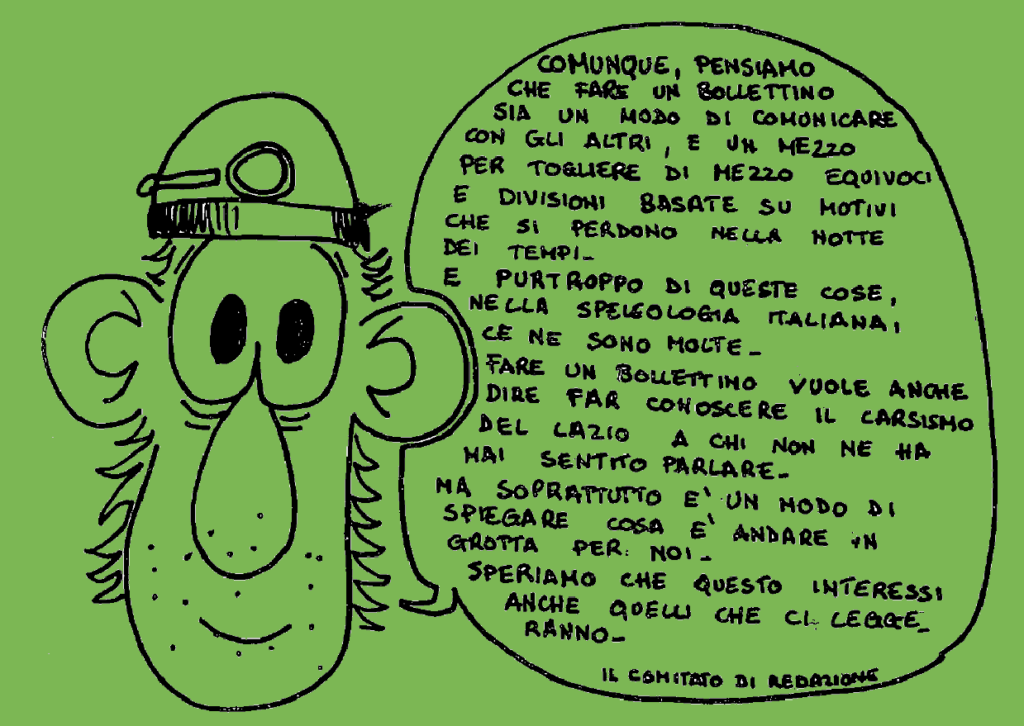 COMUNQUE, PENSIAMO
CHE FARE UN BOLLETTINO
SIA UN MODO DI COMUNICARE
CON GLI ALTRI, E UN MEZZO
PER TOGLIERE DI MEZZO EQUIVOCI
E DIVISIONI BASATE SU MOTIVI
CHE SI PERDONO NELLA NOTTE
DEI TEMPI_
E PURTROPPO DI QUESTE COSE,
NELLA SPELEOLOGIA ITALIANA,
CE NE SONO MOLTE_
FARE UN BOLLETTINO VUOLE ANCHE
DIRE FAR CONOSCERE IL CARSISMO
DEL LAZIO A CHI NON NE HA
MAI SENTITO PARLARE_
MA SOPRATTUTTO E' UN MODO DI
SPIEGARE COSA E' ANDARE IN
GROTTA PER NOI_
SPERIAMO CHE QUESTO INTERESSI
ANCHE QUELLI CHE CI LEGGE_
RANNO_
IL COMITATO DI REDAZIONE